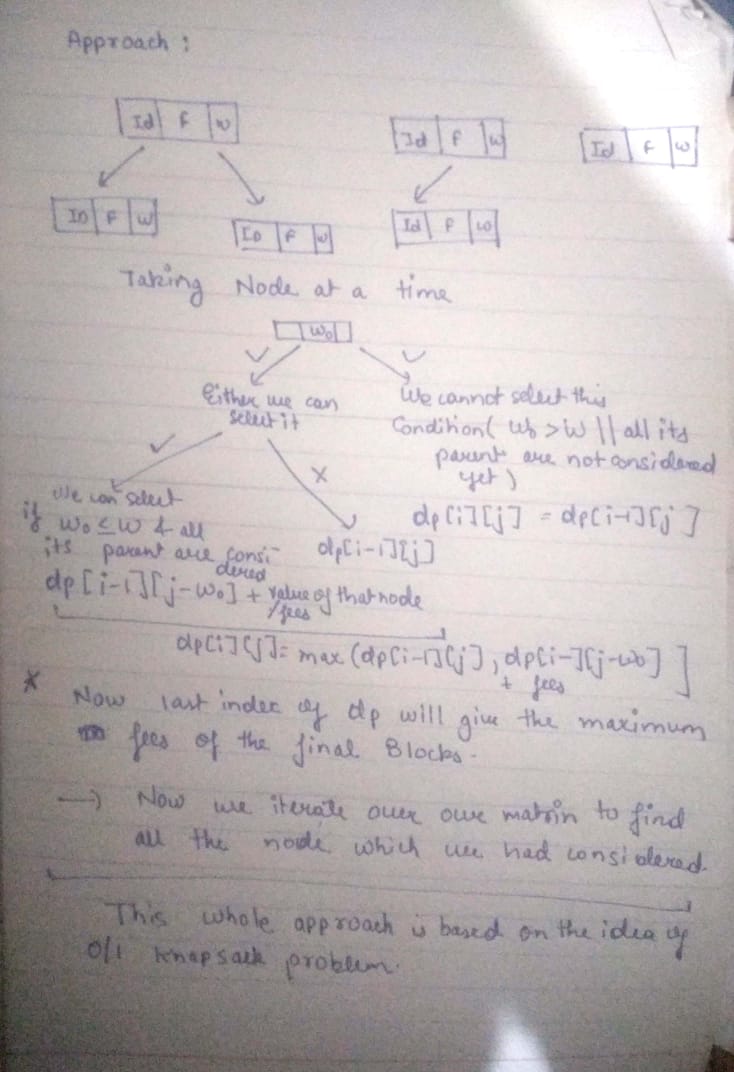 Approach :
Id f w
Id f w
Id f w
ID f w
ID f w
Id f w
Taking Node at a time
w₀
Either we can
select it
We cannot select this
Condition( w₀ > W || all its
parent are not considered
yet )
dp[i][j] = dp[i-1][j]
We can select
if w₀ ≤ W & all
its parent are consi-
dered
dp[i-1][j]
dp[i-1][j-w₀] + value of that node
/fees
dp[i][j] = max (dp[i-1][j], dp[i-][j-w₀] ]
+ fees
* Now last index of dp will give the maximum
fees of the final Blocks.
→ Now we iterate over our matrin to find
all the node which we had considered.
This whole approach is based on the idea of
0/1 knapsack problem.